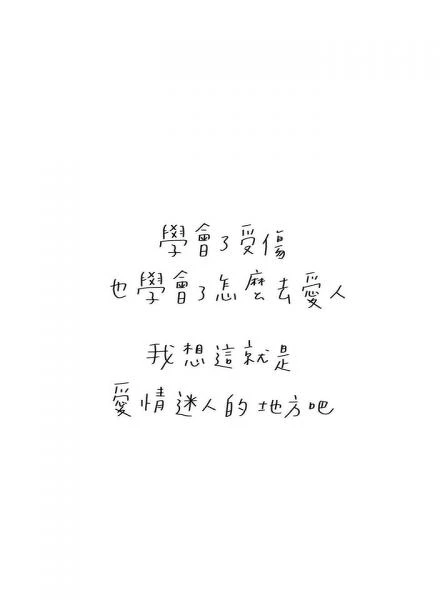 學會了受傷
也學會了怎麼去愛人
我想這就是
愛情迷人的地方吧